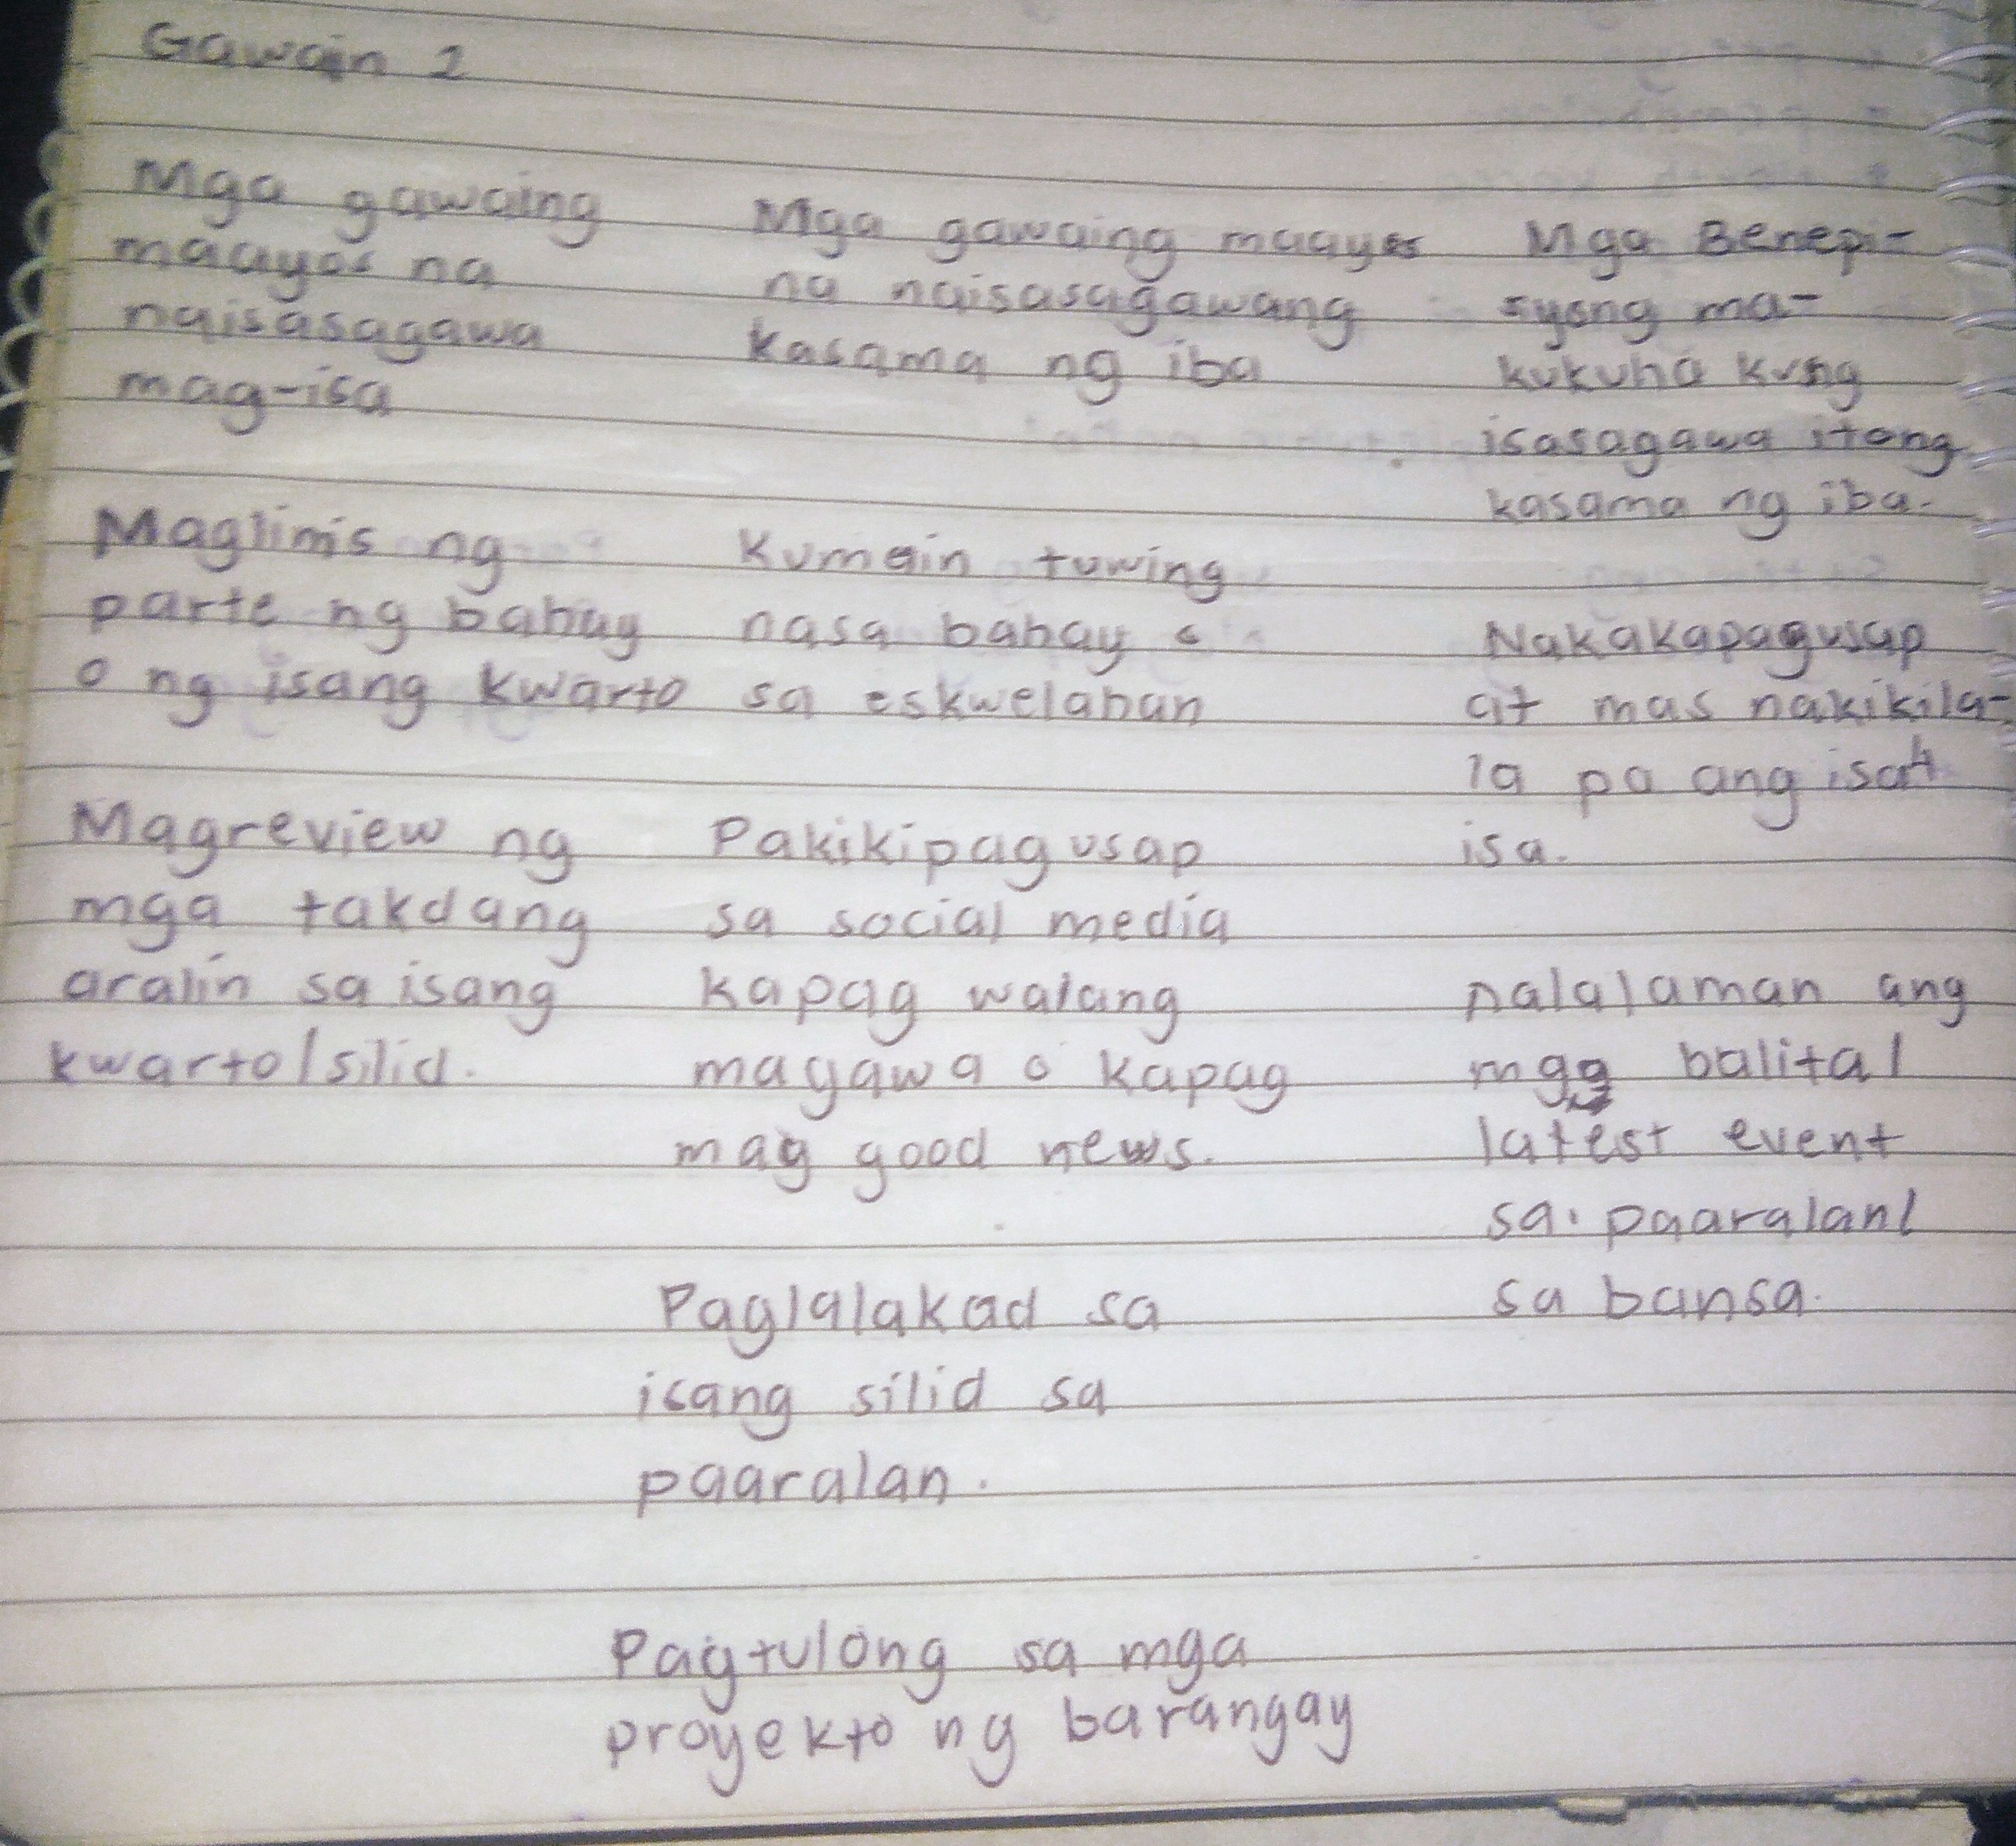 Gawain 2
Mga gawaing
maayos na
naisasagawa
mag-isa
Maglinis ng
parte ng bahay
o ng isang kwarto
Magreview ng
mga takdang
aralin sa isang
kwarto/silid.
Mga gawaing maayos
na naisasagawang
kasama ng iba
Kumain tuwing
nasa bahay o
sa eskwelahan
Pakikipagusap
sa social media
kapag walang
magawa o kapag
mag good news.
Paglalakad sa
isang silid sa
paaralan.
Pagtulong sa mga
proyekto ng barangay
Mga Benepi-
syong ma-
kukuha kung
isasagawa itong
kasama ng iba.
Nakakapagusap
at mas nakikila-
la pa ang isa't
isa.
nalalaman ang
mga balita/
latest event
sa paaralan/
sa bansa.